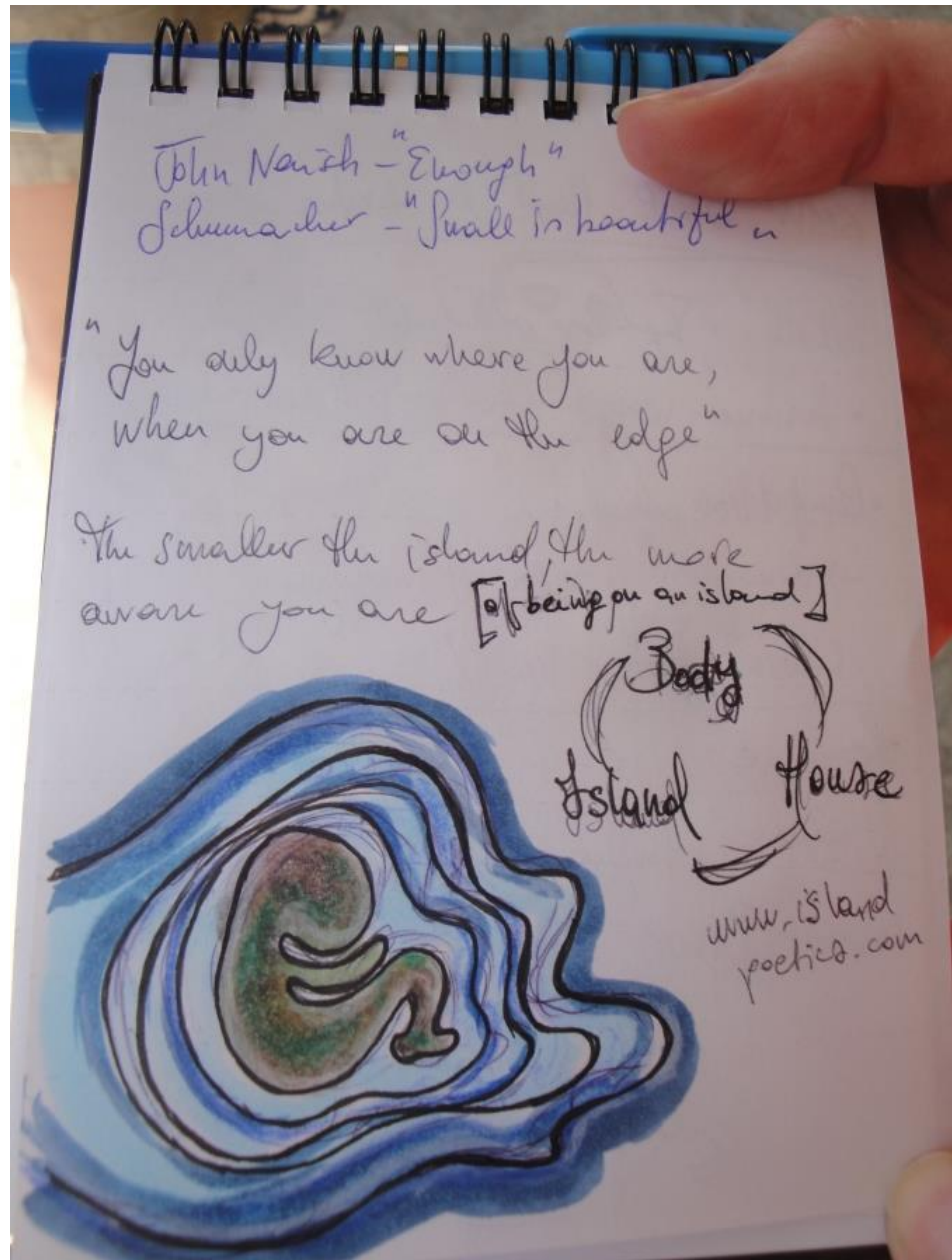 John Narish - "Enough"
Schumacher - "Small is beautiful"
"You only know where you are,
when you are on the edge"
The smaller the island, the more
aware you are [of being on an island]
Body
Island House
www.island
poetics.com